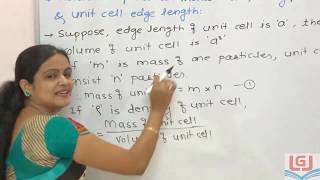 & unit cell edge length:
→ Suppose, edge length of unit cell is 'a', the
volume of unit cell is 'a³'
If 'm' is mass of one particles, unit c
nsist 'n' particles.
mass of un = m × n —①
If 'ρ' is density of unit cell,
= Mass of unit cell
Volu of unit cell
LGJ